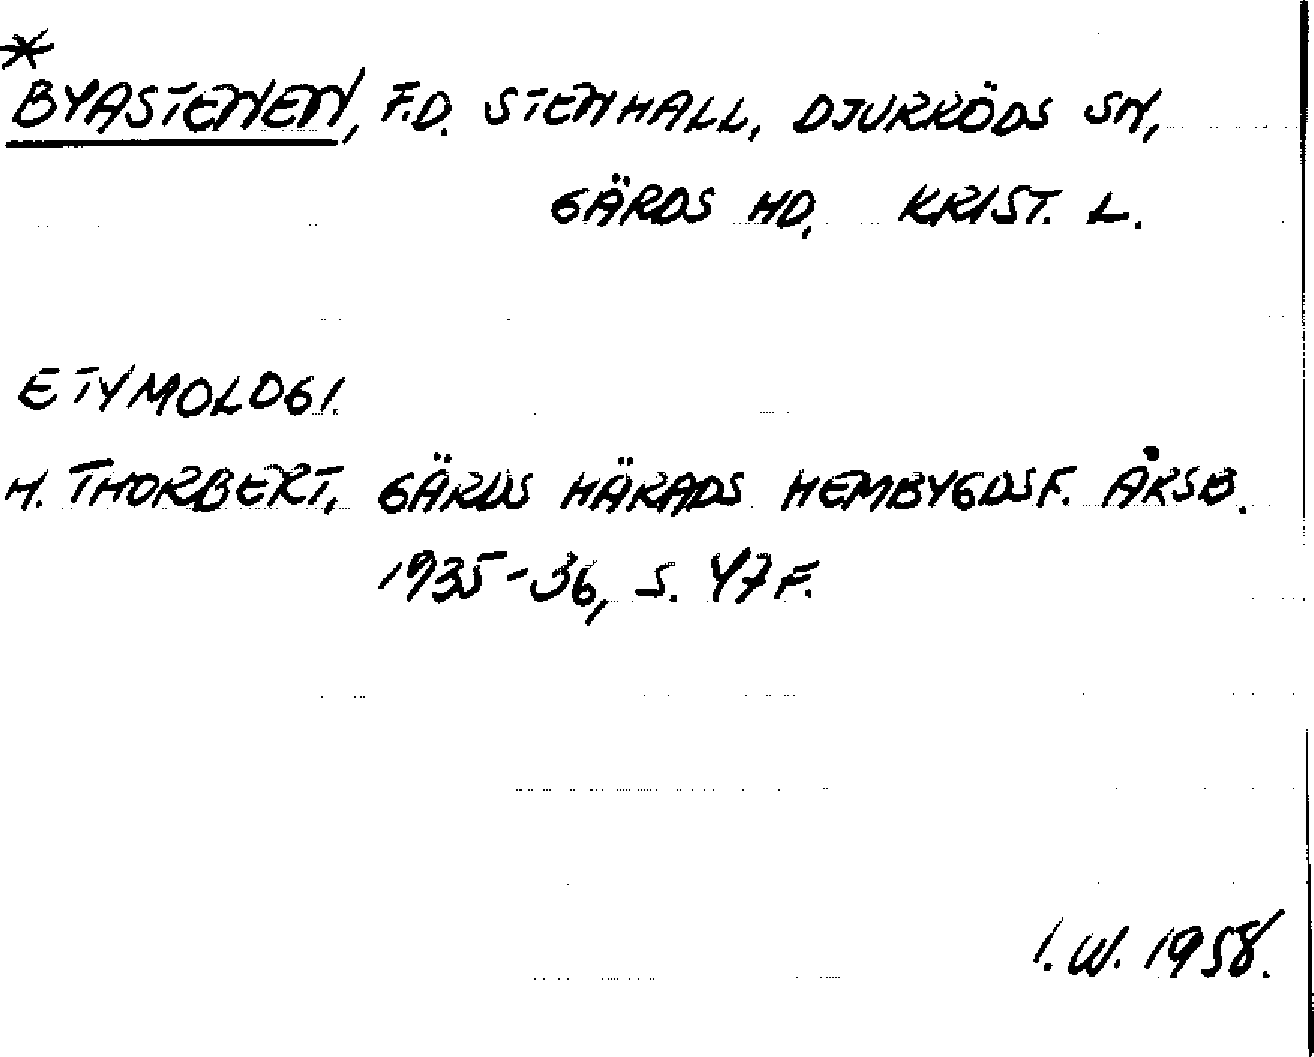 *
BYASTENEN, F.D. STENHALL, DJURRÖDS SN,
GÄRDS HD, KRIST. L.
ETYMOLOGI.
H. THORBERT, GÄRDS HÄRADS HEMBYGDSF. ÅRSB.
1935-36, S. 47 F.
I. W. 1958.